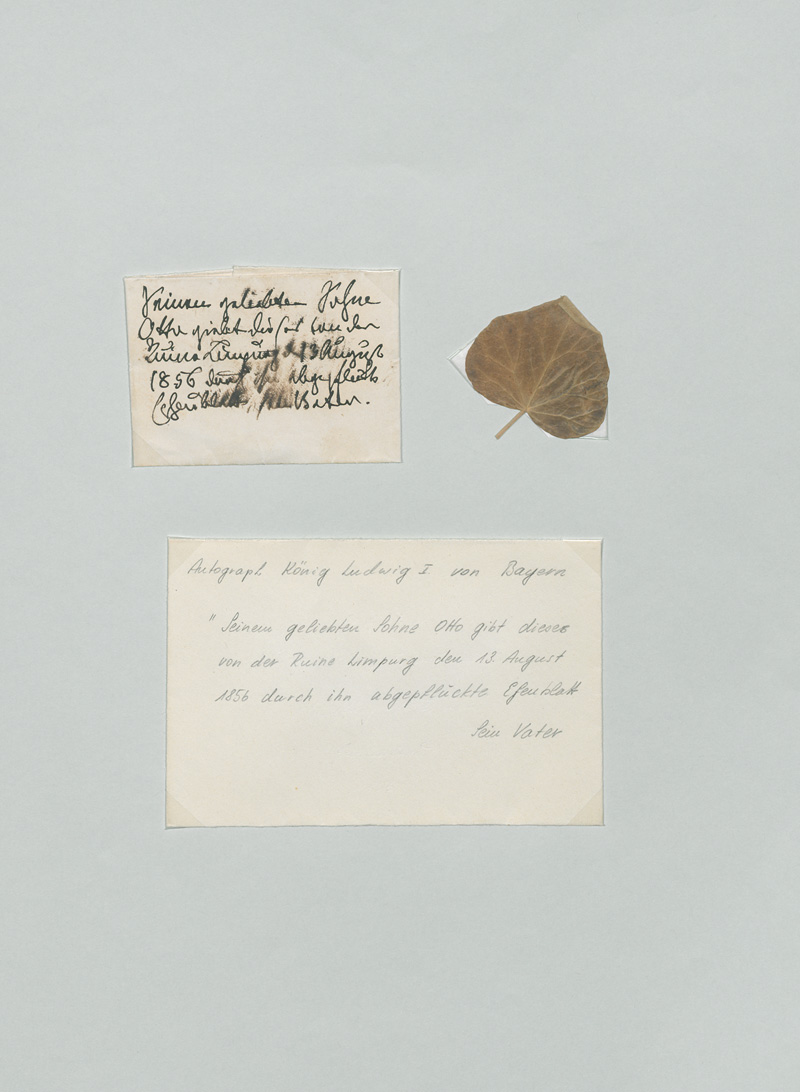 Seinem geliebten Sohne
Otto giebt dieses von der
Ruine Limpurg d. 13 August
1856 durch ihn abgepflückte
Epheublatt sein Vater.
Autograph König Ludwig I von Bayern
"Seinem geliebten Sohne Otto gibt dieses
von der Ruine Limpurg den 13. August
1856 durch ihn abgepflückte Efeublatt
Sein Vater